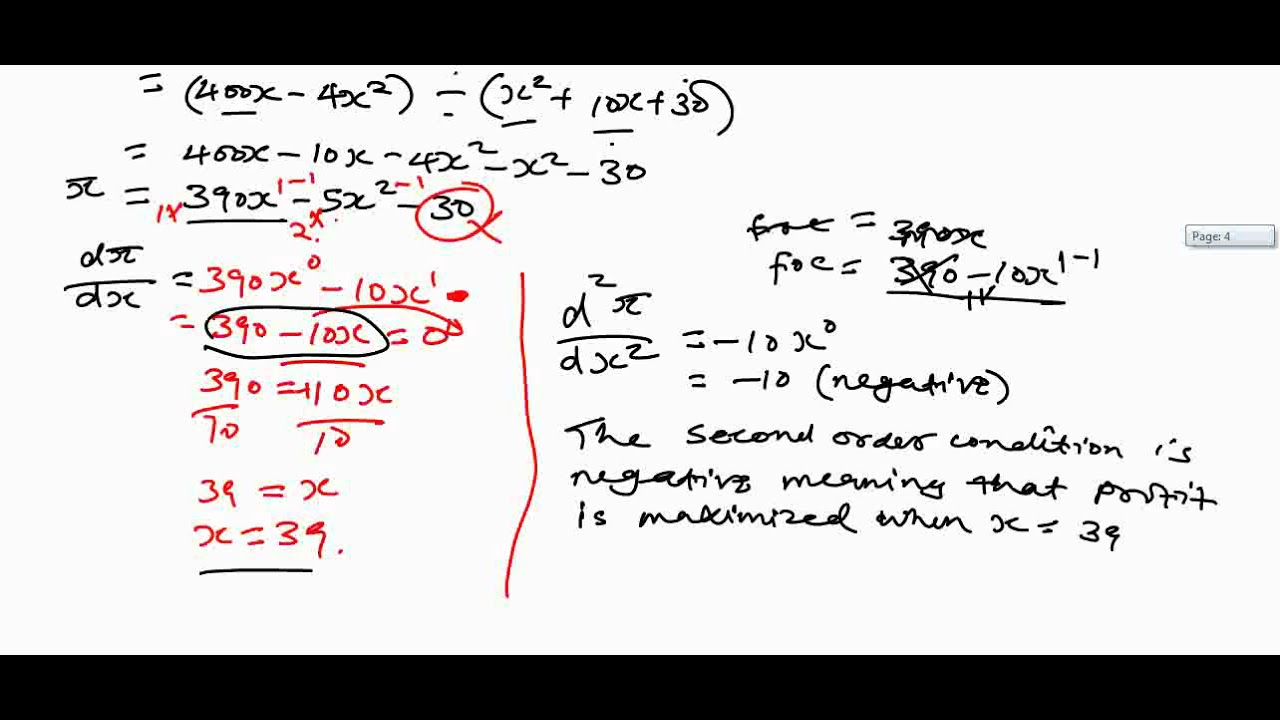 = (400x - 4x²) - (x² + 10x + 30)
= 400x - 10x - 4x² - x² - 30
π = 390x¹⁻¹ - 5x²⁻¹ - 30
1x
2x
dπ/dx = 390x⁰ - 10x¹
= 390 - 10x = 0
390/10 = +10x/10
39 = x
x = 39.
foc = 390x
foc = 390 - 10x¹⁻¹
d²π/dx² = -10x⁰
= -10 (negative)
The second order condition is
negative meaning that profit
is maximized when x = 39
Page: 4